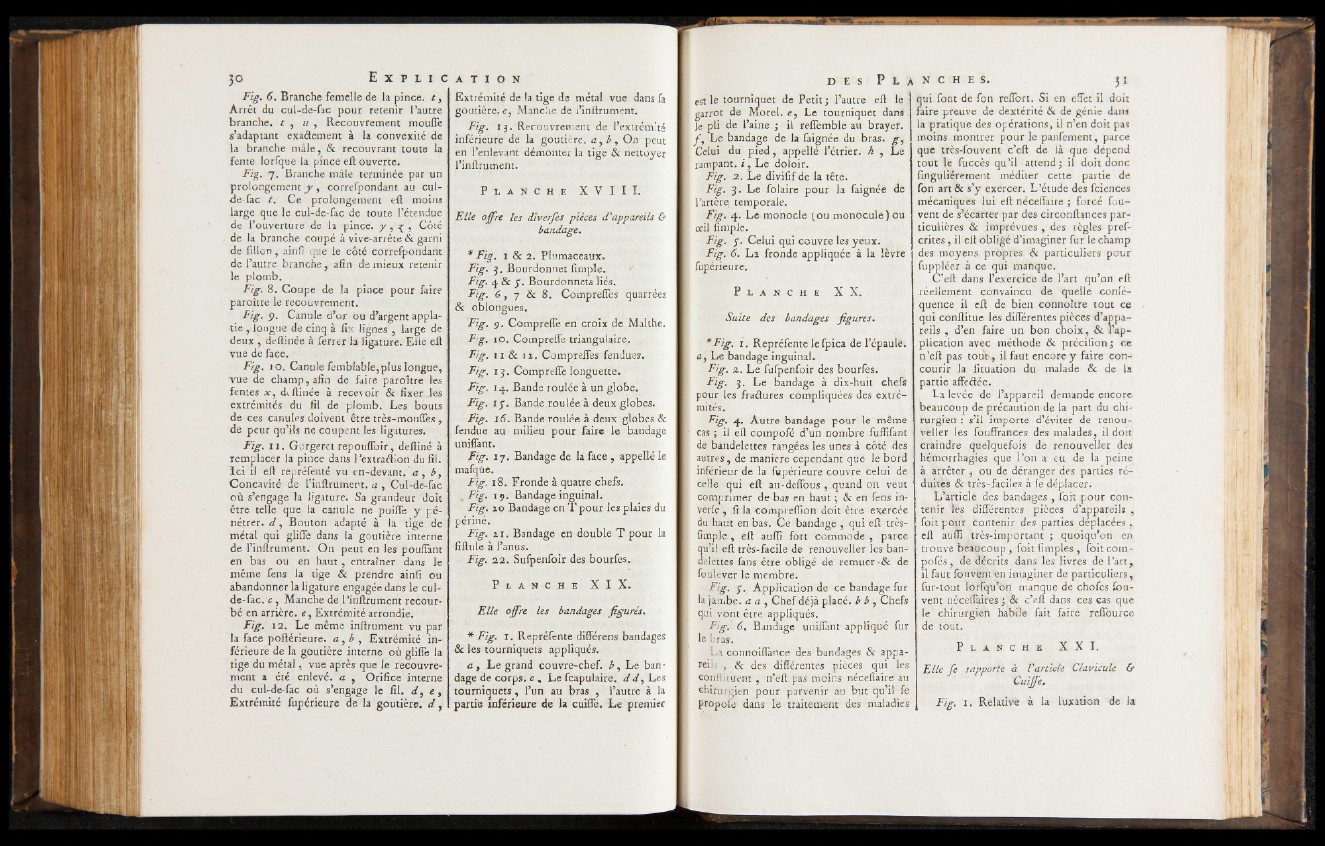 30 EXPLICATION
Fig. 6. Branche femelle de la pince. t,
Arrêt du cul-de-ſac pour retenir l'autre
branche. t , u , Recouvrement mouſſe
s'adaptant exactement à la convexité de
la branche mâle, & recouvrant toute la
fente lorſque la pince eſt ouverte.
Fig. 7. Branche mâle terminée par un
prolongement y, correſpondant au cul-
de-ſac t. Ce prolongement eſt moins
large que le cul-de-ſac de toute l'étendue
de l'ouverture de la pince. y, z, Côté
de la branche coupé à vive-arrête & garni
de ſillon, ainſi que le côté correſpondant
de l'autre branche, afin de mieux retenir
le plomb.
Fig. 8. Coupe de la pince pour faire
paroître le recouvrement.
Fig. 9. Canule d'or ou d'argent appla-
tie, longue de cinq à ſix lignes, large de
deux, deſtinée à ſerrer la ligature. Elle eſt
vue de face.
Fig. 10. Canule ſemblable, plus longue,
vue de champ, afin de faire paroître les
fentes x, deſtinée à recevoir & fixer les
extrémités du fil de plomb. Les bouts
de ces canules doivent être très-mouſſes,
de peur qu'ils ne coupent les ligatures.
Fig. 11. Gorgeret repouſſoir, deſtiné à
remplacer la pince dans l'extraction du fil.
Ici il eſt repréſenté vu en-devant. a, b,
Concavité de l'inſtrument. a, Cul-de-ſac
où s'engage la ligature. Sa grandeur doit
être telle que la canule ne puiſſe y pé-
nétrer. d, Bouton adapté à la tige de
métal qui gliſſe dans la goutière interne
de l'inſtrument. On peut en les pouſſant
en bas ou en haut, entraîner dans le
même ſens la tige & prendre ainſi ou
abandonner la ligature engagée dans le cul-
de-ſac. c, Manche de l'inſtrument recour-
bé en arrière. e, Extrémité arrondie.
Fig. 12. Le même inſtrument vu par
la face poſtérieure. a, b, Extrémité in-
férieure de la goutière interne où gliſſe la
tige du métal, vue après que le recouvre-
ment a été enlevé. a , Orifice interne
du cul-de-ſac où s'engage le fil. d, e,
Extrémité ſupérieure de la goutière. d,
Extrémité de la tige de métal vue dans ſa
goutière. e, Manche de l'inſtrument.
Fig. 13. Recouvrement de l'extrémité
inférieure de la goutière. a, b, On peut
en l'enlevant démonter la tige & nettoyer
l'inſtrument.
PLANCHE XVIII.
Elle offre les diverſes pièces d'appareils &
bandage.
* Fig. 1 & 2. Plumaceaux.
Fig. 3. Bourdonnet ſimple.
Fig. 4 & 5. Bourdonnets liés.
Fig. 6, 7 & 8. Compreſſes quarrées
& oblongues.
Fig. 9. Compreſſe en croix de Malthe.
Fig. 10. Compreſſe triangulaire.
Fig. 11 & 12. Compreſſes fendues.
Fig. 13. Compreſſe longuette.
Fig. 14. Bande roulée à un globe.
Fig. 15. Bande roulée à deux globes.
Fig. 16. Bande roulée à deux globes &
fendue au milieu pour faire le bandage
uniſſant.
Fig. 17. Bandage de la face, appellé le
maſque.
Fig. 18. Fronde à quatre chefs.
Fig. 19. Bandage inguinal.
Fig. 20 Bandage en T pour les plaies du
périné.
Fig. 21. Bandage en double T pour la
fiſtule à l'anus.
Fig. 22. Suſpenſoir des bourſes.
PLANCHE XIX.
Elle offre les bandages figurés.
* Fig. 1. Repréſente différens bandages
& les tourniquets appliqués.
a, Le grand couvre-chef. b, Le ban-
dage de corps. c, Le ſcapulaire. d d, Les
tourniquets, l'un au bras , l'autre à la
partie inférieure de la cuiſſe. Le premier
DES PLANCHES. 31
est le tourniquet de Petit; l'autre eſt le
garrot de Morel. e, Le tourniquet dans
le pli de l'aîne ; il reſſemble au brayer.
f, Le bandage de la ſaignée du bras. g,
Celui du pied, appellé l'étrier. h , Le
rampant. i, Le doloir.
Fig. 2. Le diviſif de la tête.
Fig. 3. Le ſolaire pour la ſaignée de
l'artère temporale.
Fig. 4. Le monocle (ou monocule) ou
œil ſimple.
Fig. 5. Celui qui couvre les yeux.
Fig. 6. La fronde appliquée à la lèvre
ſupérieure.
PLANCHE XX.
Suite des bandages figures.
* Fig. 1. Repréſente le ſpica de l'épaule.
a, Le bandage inguinal.
Fig. 2. Le ſuſpenſoir des bourſes.
Fig. 3. Le bandage à dix-huit chefs
pour les fractures compliquées des extré-
mités.
Fig. 4. Autre bandage pour le même
cas ; il eſt compoſé d'un nombre ſuffiſant
de bandelettes rangées les unes à côté des
autres, de manière cependant que le bord
inférieur de la ſupérieure couvre celui de
celle qui eſt au-deſſous, quand on veut
comprimer de bas en haut ; & en ſens in-
verſe, ſi la compreſſion doit être exercée
du haut en bas. Ce bandage, qui eſt très-
ſimple, eſt auſſi fort commode , parce
qu'il eſt très-facile de renouveller les ban-
delettes ſans être obligé de remuer & de
ſoulever le membre.
Fig. 5. Application de ce bandage ſur
la jambe. a a, Chef déjà placé. b b, Chefs
qui vont être appliqués.
Fig. 6. Bandage uniſſant appliqué ſur
le bras.
La connoiſſance des bandages & appa-
reils , & des différentes pièces qui les
conſtituent, n'eſt pas moins néceſſaire au
chirurgien pour parvenir au but qu'il ſe
propoſe dans le traitement des maladies
qui ſont de ſon reſſort. Si en effet il doit
faire preuve de dextérité & de génie dans
la pratique des opérations, il n'en doit pas
moins montrer pour le panſement, parce
que très-ſouvent c'eſt de là que dépend
tout le ſuccès qu'il attend ; il doit donc
ſinguliérement méditer cette partie de
ſon art & s'y exercer. L'étude des ſciences
mécaniques lui eſt néceſſaire ; forcé ſou-
vent de s'écarter par des circonſtances par-
ticulières & imprévues, des règles preſ-
crites, il eſt obligé d'imaginer ſur le champ
des moyens propres & particuliers pour
ſuppléer à ce qui manque.
C'eſt dans l'exercice de l'art qu'on eſt
réellement convaincu de quelle conſé-
quence il eſt de bien connoître tout ce
qui conſtitue les différentes pièces d'appa-
reils, d'en faire un bon choix, & l'ap-
plication avec méthode & préciſion ; ce
n'eſt pas tout, il faut encore y faire con-
courir la ſituation du malade & de la
partie affectée.
La levée de l'appareil demande encore
beaucoup de précaution de la part du chi-
rurgien : s'il importe d'éviter de renou-
veller les ſouffrances des malades, il doit
craindre quelquefois de renouveller des
hémorrhagies que l'on a eu de la peine
à arrêter , ou de déranger des parties ré-
duites & très-faciles à ſe déplacer.
L'article des bandages, ſoit pour con-
tenir les différentes pièces d'appareils ,
ſoit pour contenir des parties déplacées ,
eſt auſſi très-important ; quoiqu'on en
trouve beaucoup, ſoit ſimples, ſoit com-
poſés, de décrits dans les livres de l'art,
il faut ſouvent en imaginer de particuliers,
ſur-tout lorſqu'on manque de choſes ſou-
vent néceſſaires ; & c'eſt dans ces cas que
le chirurgien habile ſait faire reſſource
de tout.
PLANCHE XXI.
Elle ſe rapporte à l'article Clavicule &
Cuiſſe.
Fig. 1. Relative à la luxation de la